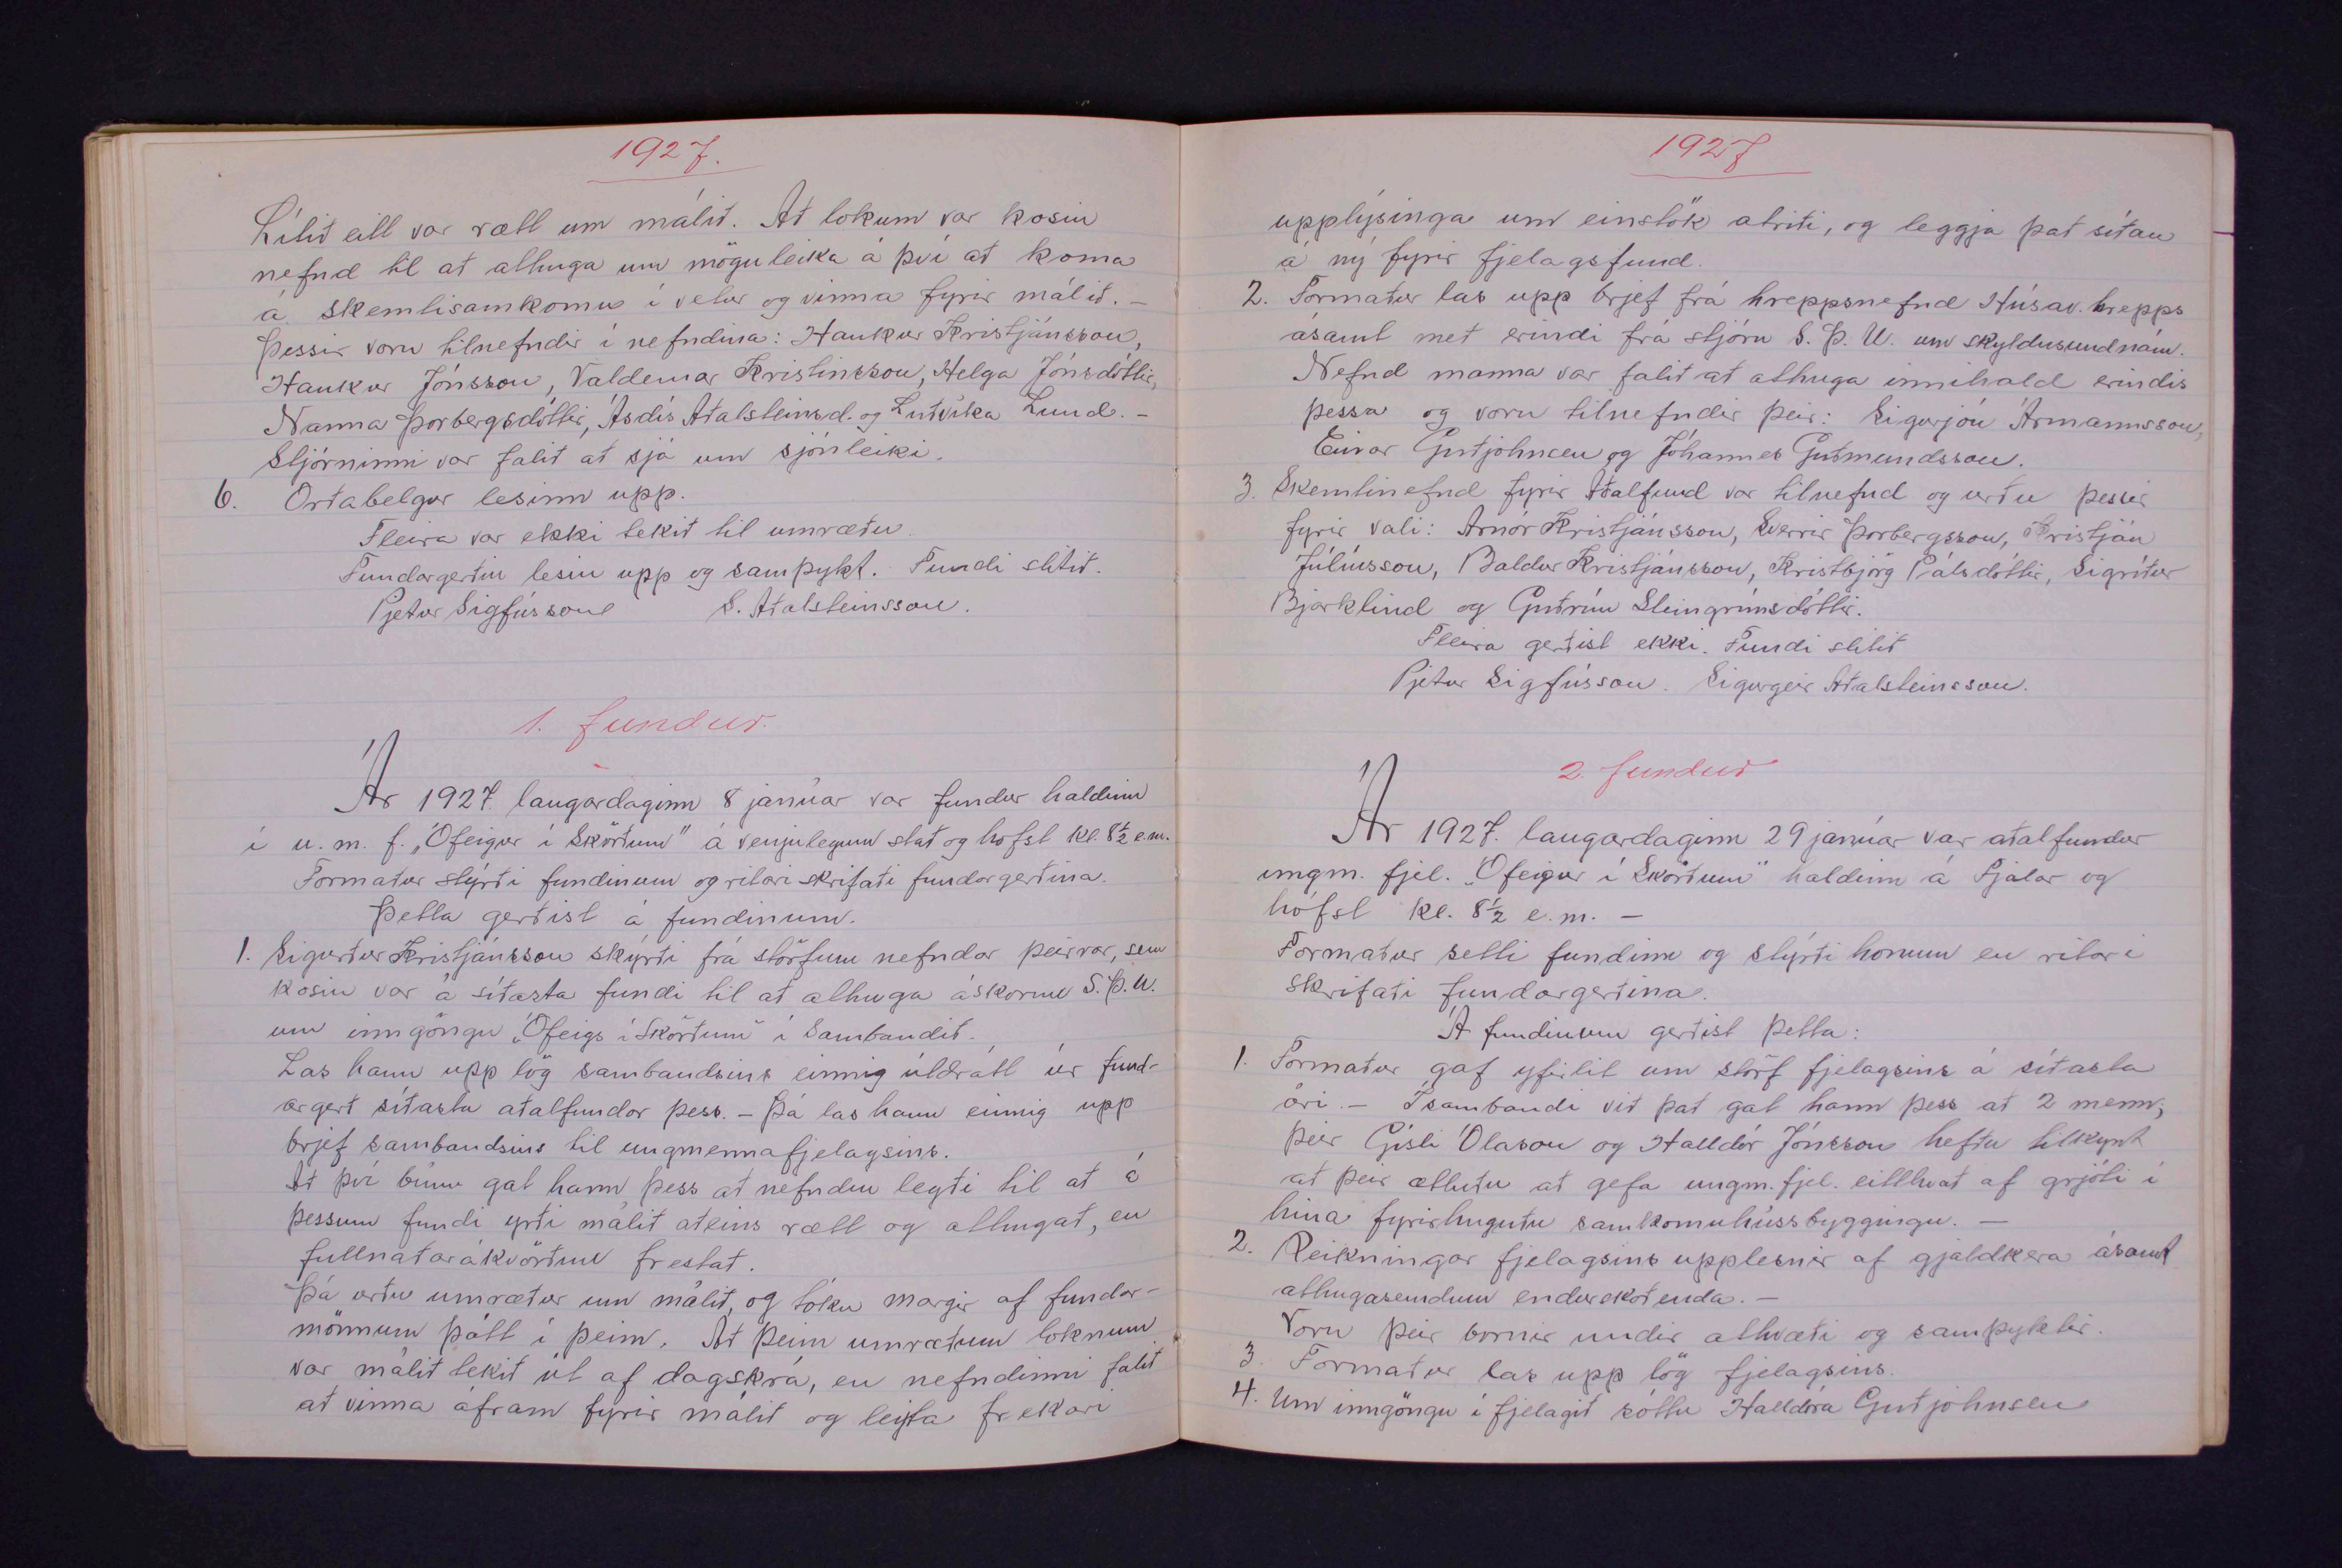 1927.
Lítið eitt var rætt um málið. Að lokum var kosin
nefnd til að athuga um möguleika á því að koma
á skemtisamkomu í vetur og vinna fyrir málið. –
Þessir voru tilnefndir í nefndina: Haukur Kristjánsson,
Haukur Jónsson, Valdemar Kristinsson, Helga Jónsdóttir,
Nanna Þorbergsdóttir, Ásdís Aðalsteinsd. og Lúðvíka Lund. –
Stjórninni var falið að sjá um sjónleiki.
6. Orðabelgur lesinn upp.
Fleira var ekki tekið til umræðu.
Fundargerðin lesin upp og samþykt. Fundi slitið.
Pjetur Sigfússon S. Aðalsteinsson.
1. fundur.
Ár 1927. laugardaginn 8 janúar var fundur haldinn
í u. m. f. „Ófeigur í Skörðum" á venjulegum stað og hófst kl. 8½ e.m.
Formaður stýrði fundinum og ritari skrifaði fundargerðina.
Þetta gerðist á fundinum.
1. Sigurður Kristjánsson skýrði frá störfum nefndar þeirrar, sem
kosin var á síðasta fundi til að athuga áskorun S.Þ.U.
um inngöngu „Ófeigs í Skörðum" í Sambandið.
Las hann upp lög sambandsins einnig útdrátt úr fund-
argerð síðasta aðalfundar þess. – Þá las hann einnig upp
brjef sambandsins til ungmennafjelagsins.
Að því búnu gat hann þess að nefndin legði til að á
þessum fundi yrði málið aðeins rætt og athugað, en
fullnaðarákvörðun frestað.
Þá urðu umræður um málið, og tóku margir af fundar-
mönnum þátt í þeim. Að þeim umræðum loknum
var málið tekið út af dagskrá, en nefndinni falið
að vinna áfram fyrir málið og leita frekari
1927
upplýsinga um einstök atriði, og leggja það síðan
á ný fyrir fjelagsfund.
2. Formaður las upp brjef frá hreppsnefnd Húsav. hrepps
ásamt með erindi frá stjórn S. Þ. U. um skyldusundnám.
Nefnd manna var falið að athuga innihald erindis
þessa og voru tilnefndir þeir: Sigurjón Ármannsson,
Einar Guðjohnsen og Jóhannes Guðmundsson.
3. Skemtinefnd fyrir Aðalfund var tilnefnd og urðu þessir
fyrir vali: Arnór Kristjánsson, Sverrir Þorbergsson, Kristján
Júlíusson, Baldur Kristjánsson, Kristbjörg Pálsdóttir, Sigríður
Bjarklind og Guðrún Steingrímsdóttir.
Fleira gerðist ekki. Fundi slitið
Pjetur Sigfússon. Sigurgeir Aðalsteinsson.
2. fundur
Ár 1927. laugardaginn 29 janúar var aðalfundur
ungm. fjel. „Ófeigur í Skörðum" haldinn á Fjalar og
hófst kl. 8½ e. m. –
Formaður setti fundinn og stýrði honum en ritari
skrifaði fundargerðina.
Á fundinum gerðist þetta:
1. Formaður gaf yfirlit um störf fjelagsins á síðasta
ári. – Í sambandi við það gat hann þess að 2 menn,
þeir Gísli Ólason og Halldór Jónsson hefðu tilkynt
að þeir ætluðu að gefa ungm. fjel. eitthvað af grjóti í
hina fyrirhuguðu samkomuhússbyggingu. –
2. Reikningar fjelagsins upplesnir af gjaldkera ásamt
athugasemdum endurskoðenda. –
Voru þeir bornir undir atkvæði og samþyktir.
3. Formaður las upp lög fjelagsins.
4. Um inngöngu í fjelagið sóttu Halldóra Guðjohnsen